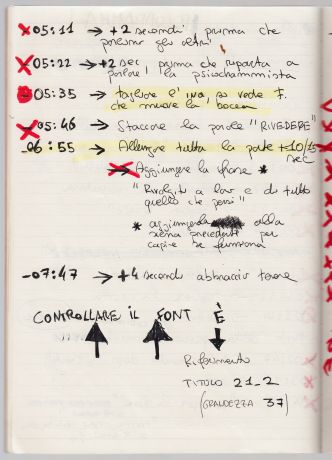 05:11 → +2 secondi prima che
parlino gli altri
05:22 → +2 sec prima che riparta a
parlare la psicodrammista
05:35 → tagliare l'INQ, si vede F.
che muove la bocca
05:46 → Staccare la parola "RIVEDERE"
-06:55 → Allungare tutta la parte +10/15
sec
→ Aggiungere la frase *
"Rivolgiti a lor e di' tutto
quello che pensi"
* aggiungerla alla
scena precedente per
capire se funziona
-07:47 → +4 secondi abbraccio
CONTROLLARE IL FONT È
Riferimento
TITOLO 21_2
(GRANDEZZA 37)